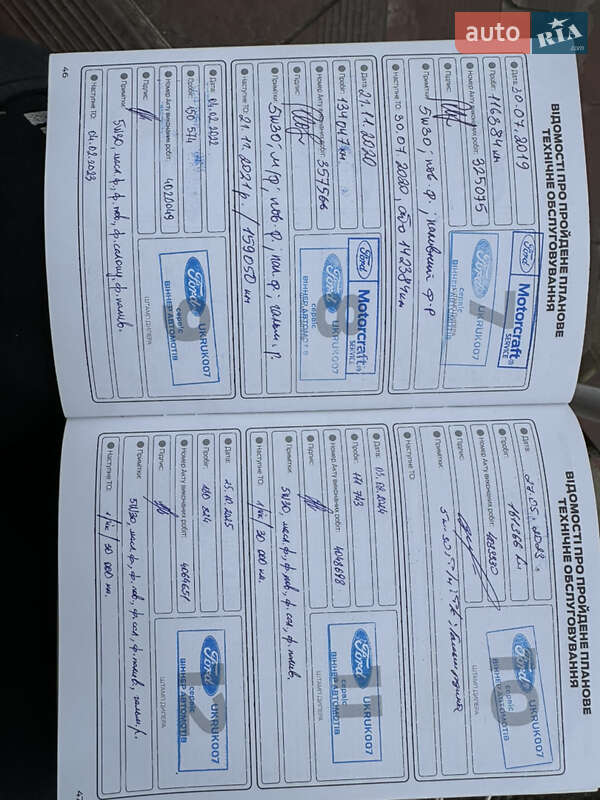 auto RIA
.com
ВІДОМОСТІ ПРО ПРОЙДЕНЕ ПЛАНОВЕ
ТЕХНІЧНЕ ОБСЛУГОВУВАННЯ
Дата: 30.07.2019
Пробіг: 116384 км
Номер Акту виконаних робіт: 325075
Підпис:
Примітки: 5W30, пов. ф.; паливний ф-р
Наступне ТО: 30.07.2020, або 142384 км
7
Ford
Motorcraft®
SERVICE
Ford
UKRUK007
сервіс
ВІННЕР АВТОМОТІВ
Дата: 21.11.2020
Пробіг: 134047 км
Номер Акту виконаних робіт: 357566
Підпис:
Примітки: 5W30, м/ф; пов. ф.; пал. ф.; гальм. р.
Наступне ТО: 21.11.2021 р. / 159050 км
8
Ford
Motorcraft®
SERVICE
Ford
UKRUK007
сервіс
ВІННЕР АВТОМОТІВ
Дата: 04.02.2022
Пробіг: 150 574
Номер Акту виконаних робіт: 4020049
Підпис:
Примітки: 5W30, масл. ф, ф. пов, ф. салону, ф. палив.
Наступне ТО: 04.02.2023
9
Ford
UKRUK007
сервіс
ВІННЕР АВТОМОТІВ
ШТАМП ДИЛЕРА
46
ВІДОМОСТІ ПРО ПРОЙДЕНЕ ПЛАНОВЕ
ТЕХНІЧНЕ ОБСЛУГОВУВАННЯ
Дата:
Пробіг:
Номер Акту виконаних робіт:
Підпис:
Примітки:
Наступне ТО:
10
Ford
UKRUK007
сервіс
ВІННЕР АВТОМОТІВ
ШТАМП ДИЛЕРА
Дата: 05.08.2024
Пробіг: 171 743
Номер Акту виконаних робіт: 4048698
Підпис:
Примітки: 5W30, масл. ф, ф. пов, ф. сал, ф. палив.
Наступне ТО: 1 рік / 30 000 км.
11
Ford
UKRUK007
сервіс
ВІННЕР АВТОМОТІВ
ШТАМП ДИЛЕРА
Дата: 25.10.2025
Пробіг: 180 824
Номер Акту виконаних робіт: 4064651
Підпис:
Примітки: 5W30, масл. ф, ф. пов, ф. сал, ф. палив, гальм. р.
Наступне ТО: 1 рік / 30 000 км.
12
Ford
UKRUK007
сервіс
ВІННЕР АВТОМОТІВ
ШТАМП ДИЛЕРА
47